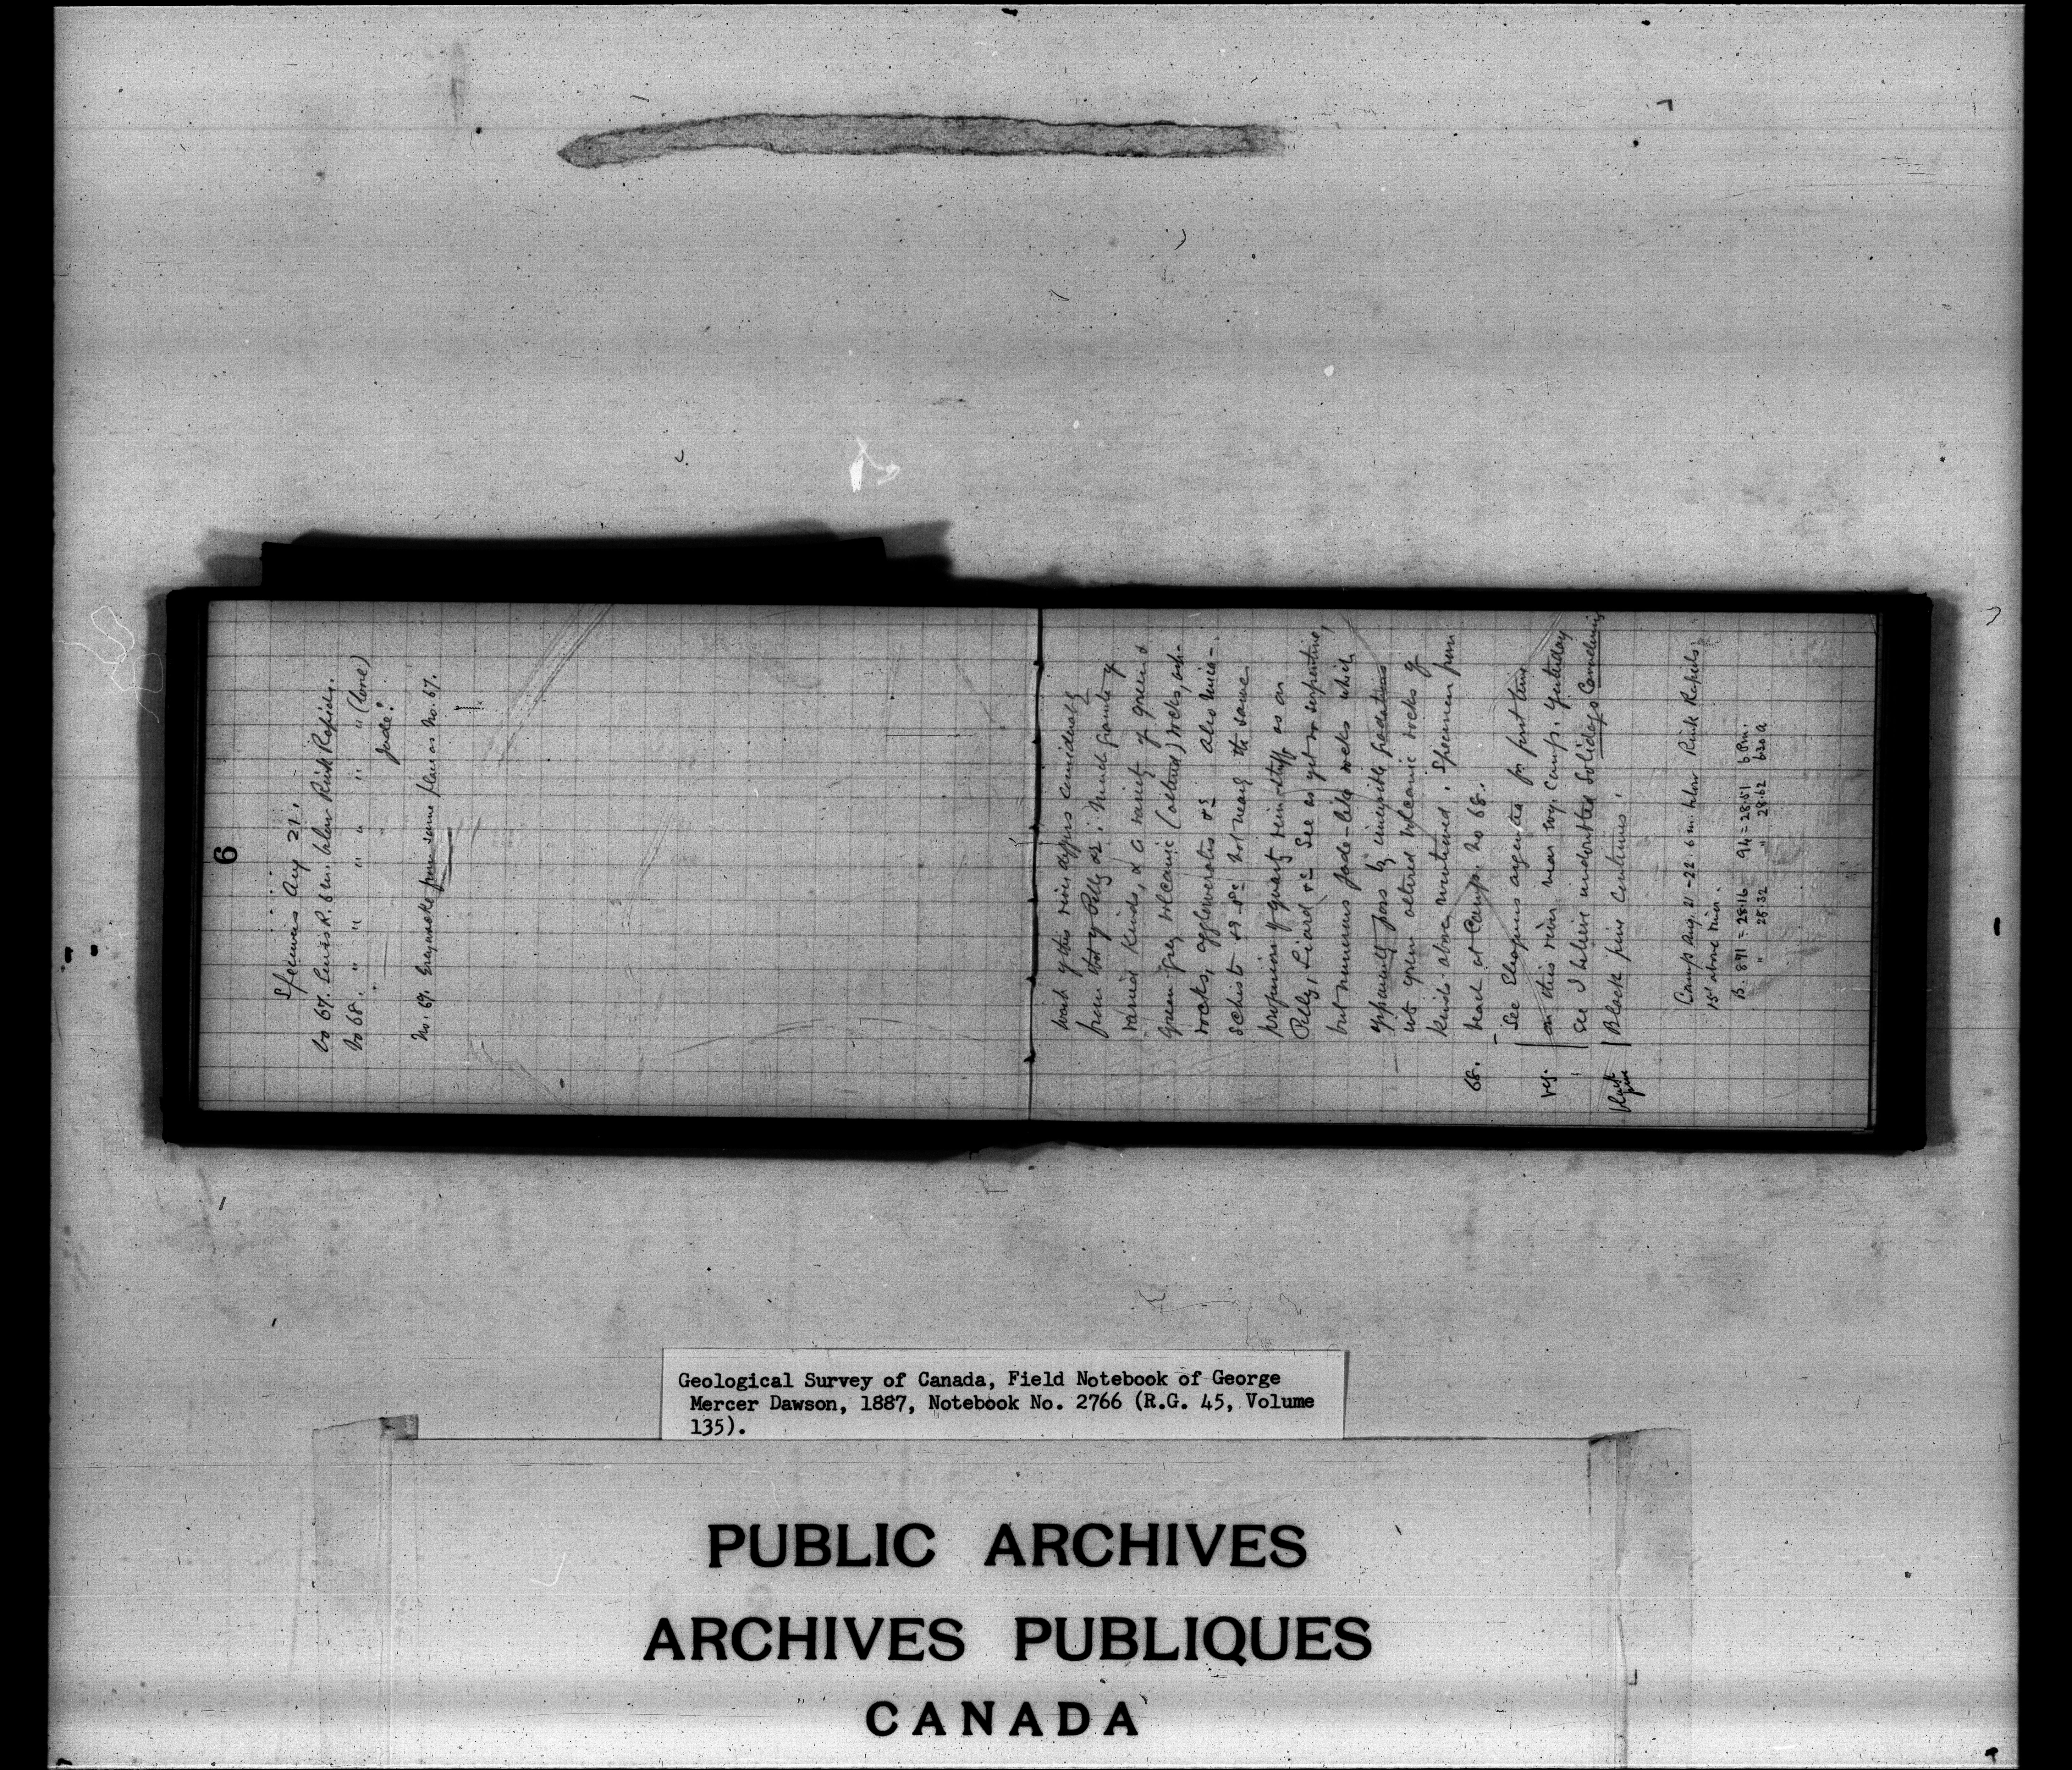 6
Specimens Aug 21.
No 67. Lewis R. 6 m. below Rink Rapids.
No 68. " " " " " " (bone)
Jade?
No. 69. from same place as No. 67.
wash of this river differs considerably
from that of Pelly &c. Much granite of
varied kinds, & a variety of green &
green grey volcanic (altered) rocks, ash-
rocks, agglomerates &c also mica-
schists &c &c not nearly the same
proportion of quartz vein-stuff as on
Pelly, Liard &c See as yet no serpentine,
but numerous Jade-like rocks which
apparently pass by insensible gradations
into green altered volcanic rocks of
kinds above mentioned. Specimen from
68. beach at Camp. No 68.
See Eleagnus argentea for first time
veg. on this river near our Camp. Yesterday
see I believe undoubted Solidago Canadensis
Black pine Black pine continues.
Camp Aug. 21-22 6 m. below Rink Rapids.
15' above river.
B. 891 = 28.16 94 = 28.51 6 P.m.
" 28.32 " 28.62 630 a
Geological Survey of Canada, Field Notebook of George
Mercer Dawson, 1887, Notebook No. 2766 (R.G. 45, Volume
135).
PUBLIC ARCHIVES
ARCHIVES PUBLIQUES
CANADA